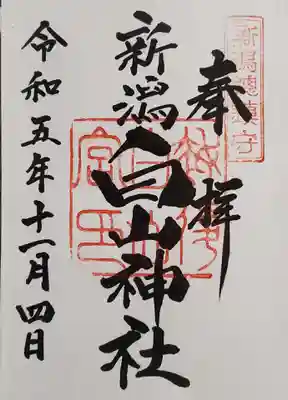 新潟總鎮守
奉拝
新潟白山神社
令和五年十一月四日